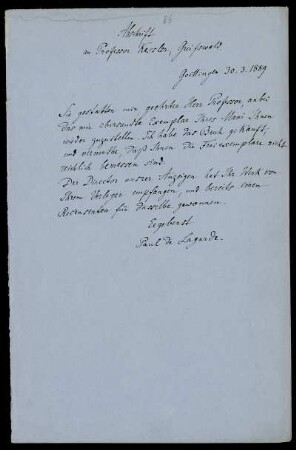 86
Abschrift
an Professor Kessler, Greifswald.
Goettingen 30.3.1889
Sie gestatten mir geehrter Herr Professor, anbei
das mir übersandte Exemplar Ihres Mani Ihnen
wieder zuzustellen. Ich habe das Buch gekauft,
und vermuthe, daß Ihnen die Freiexemplare nicht
reichlich bemessen sind.
Der Director unsrer Anzeigen hat Ihr Werk von
Ihrem Verleger empfangen, und bereits einen
Recensenten für dasselbe gewonnen.
Ergebenst
Paul de Lagarde.